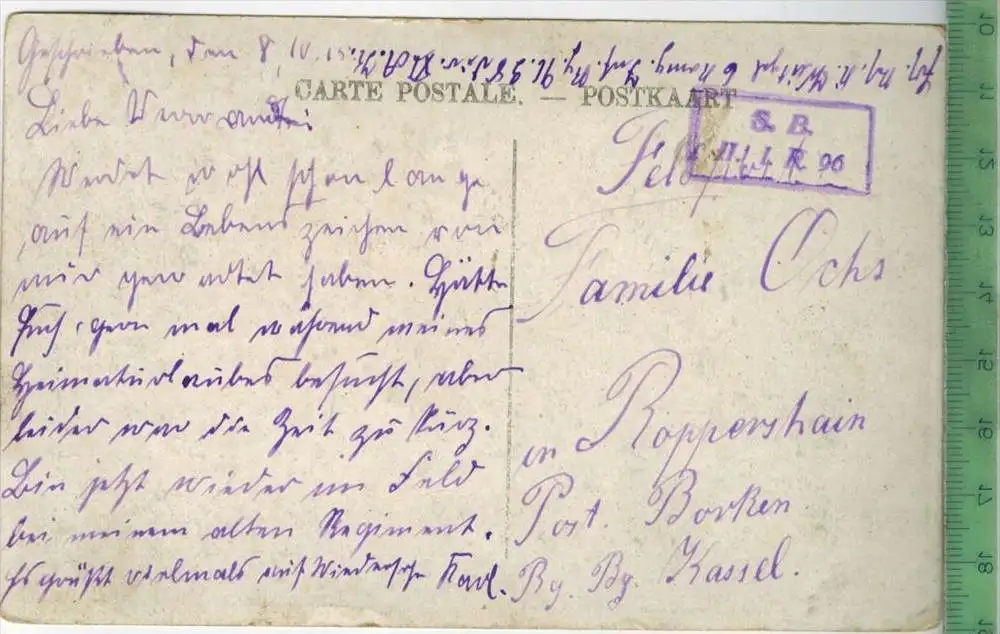 Geschrieben, den 8.
CARTE POSTALE. — POSTKAART
S. B.
R 96
Liebe Verwandte!
Werdet wohl schon lange
auf ein Lebenszeichen von
mir gewartet haben. Hätte
Euch gern mal während meines
Heimaturlaubes besucht, aber
leider war die Zeit zu kurz.
Bin jetzt wieder im Feld
bei meinem alten Regiment.
Es grüßt vielmals auf Wiedersehn Karl.
Familie Ochs
in Roppershain
Post. Borken
Bz. Kassel.
10
11
13
14
15
16
17
18